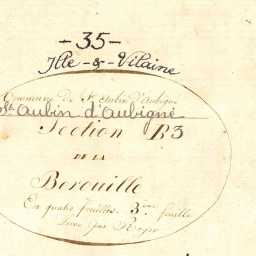 -35-
Ille-&-Vilaine
Commune de St Aubin d'Aubigné
St Aubin d'Aubigné
Section B3
DE LA
Berouille
En quatre feuilles. 3ème feuille
Levée par